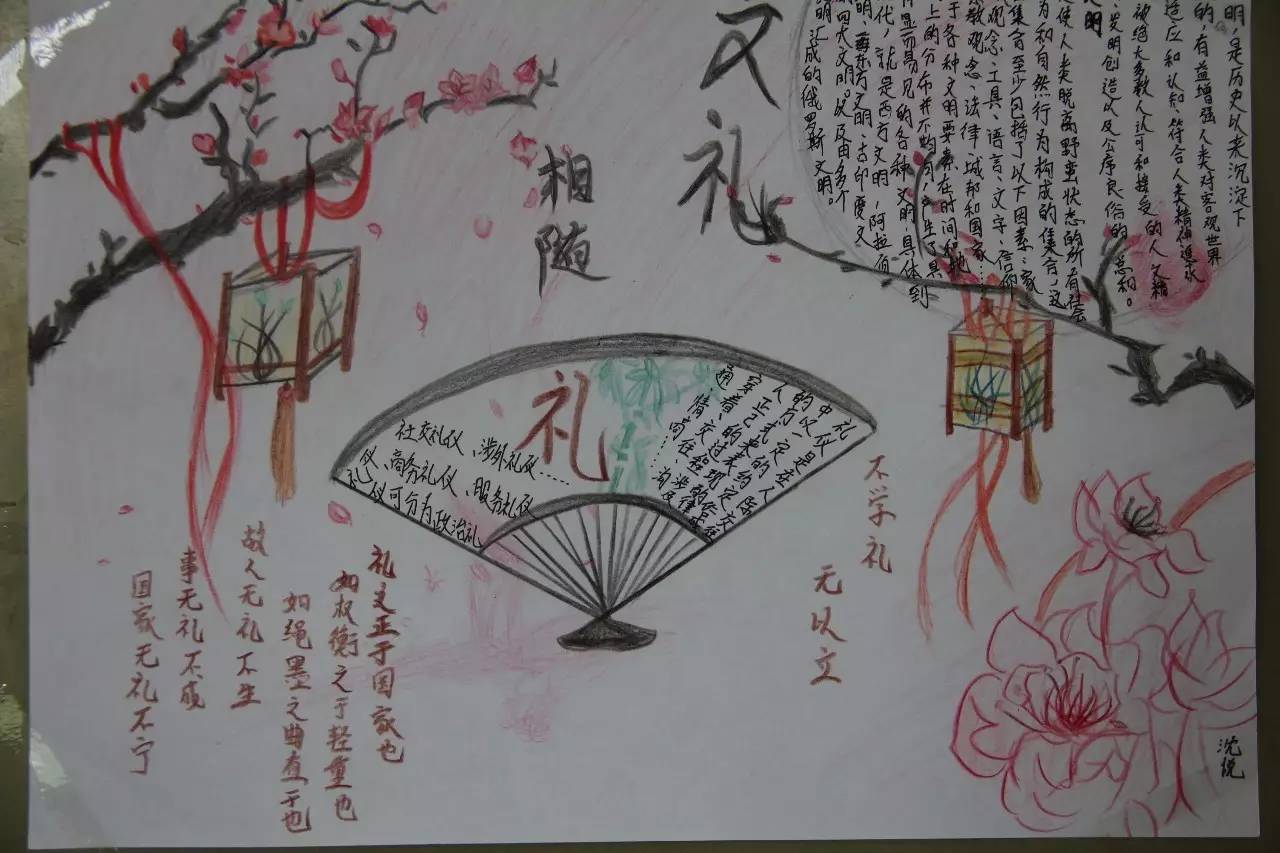 明，是历史以来沉淀下
的，有益增强人类对客观世界
适应和认知、符合人类精神追求
被绝大多数人认可和接受的人文精
、发明创造以及公序良俗的总和。
明
是使人类脱离野蛮状态的所有社会
为和自然行为构成的集合，这
集合至少包括了以下因素：家
观念、工具、语言、文字、信仰
教观念、法律、城邦和国家……
于各种文明要素在时间和地
上的分布并不均匀，产生了具
有显而易见的各种文明，具体到
代，就是西方文明，阿拉伯
明，东方文明，古印度文
的四大文明。以及由多个
明汇成的俄罗斯文明。
文礼
相随
礼
礼仪可分为政治礼
仪、商务礼仪、服务礼仪
社交礼仪、涉外礼仪……
不学礼
无以立
礼之正于国家也
如权衡之于轻重也
如绳墨之曲直于也
故人无礼不生
事无礼不成
国家无礼不宁
沈悦